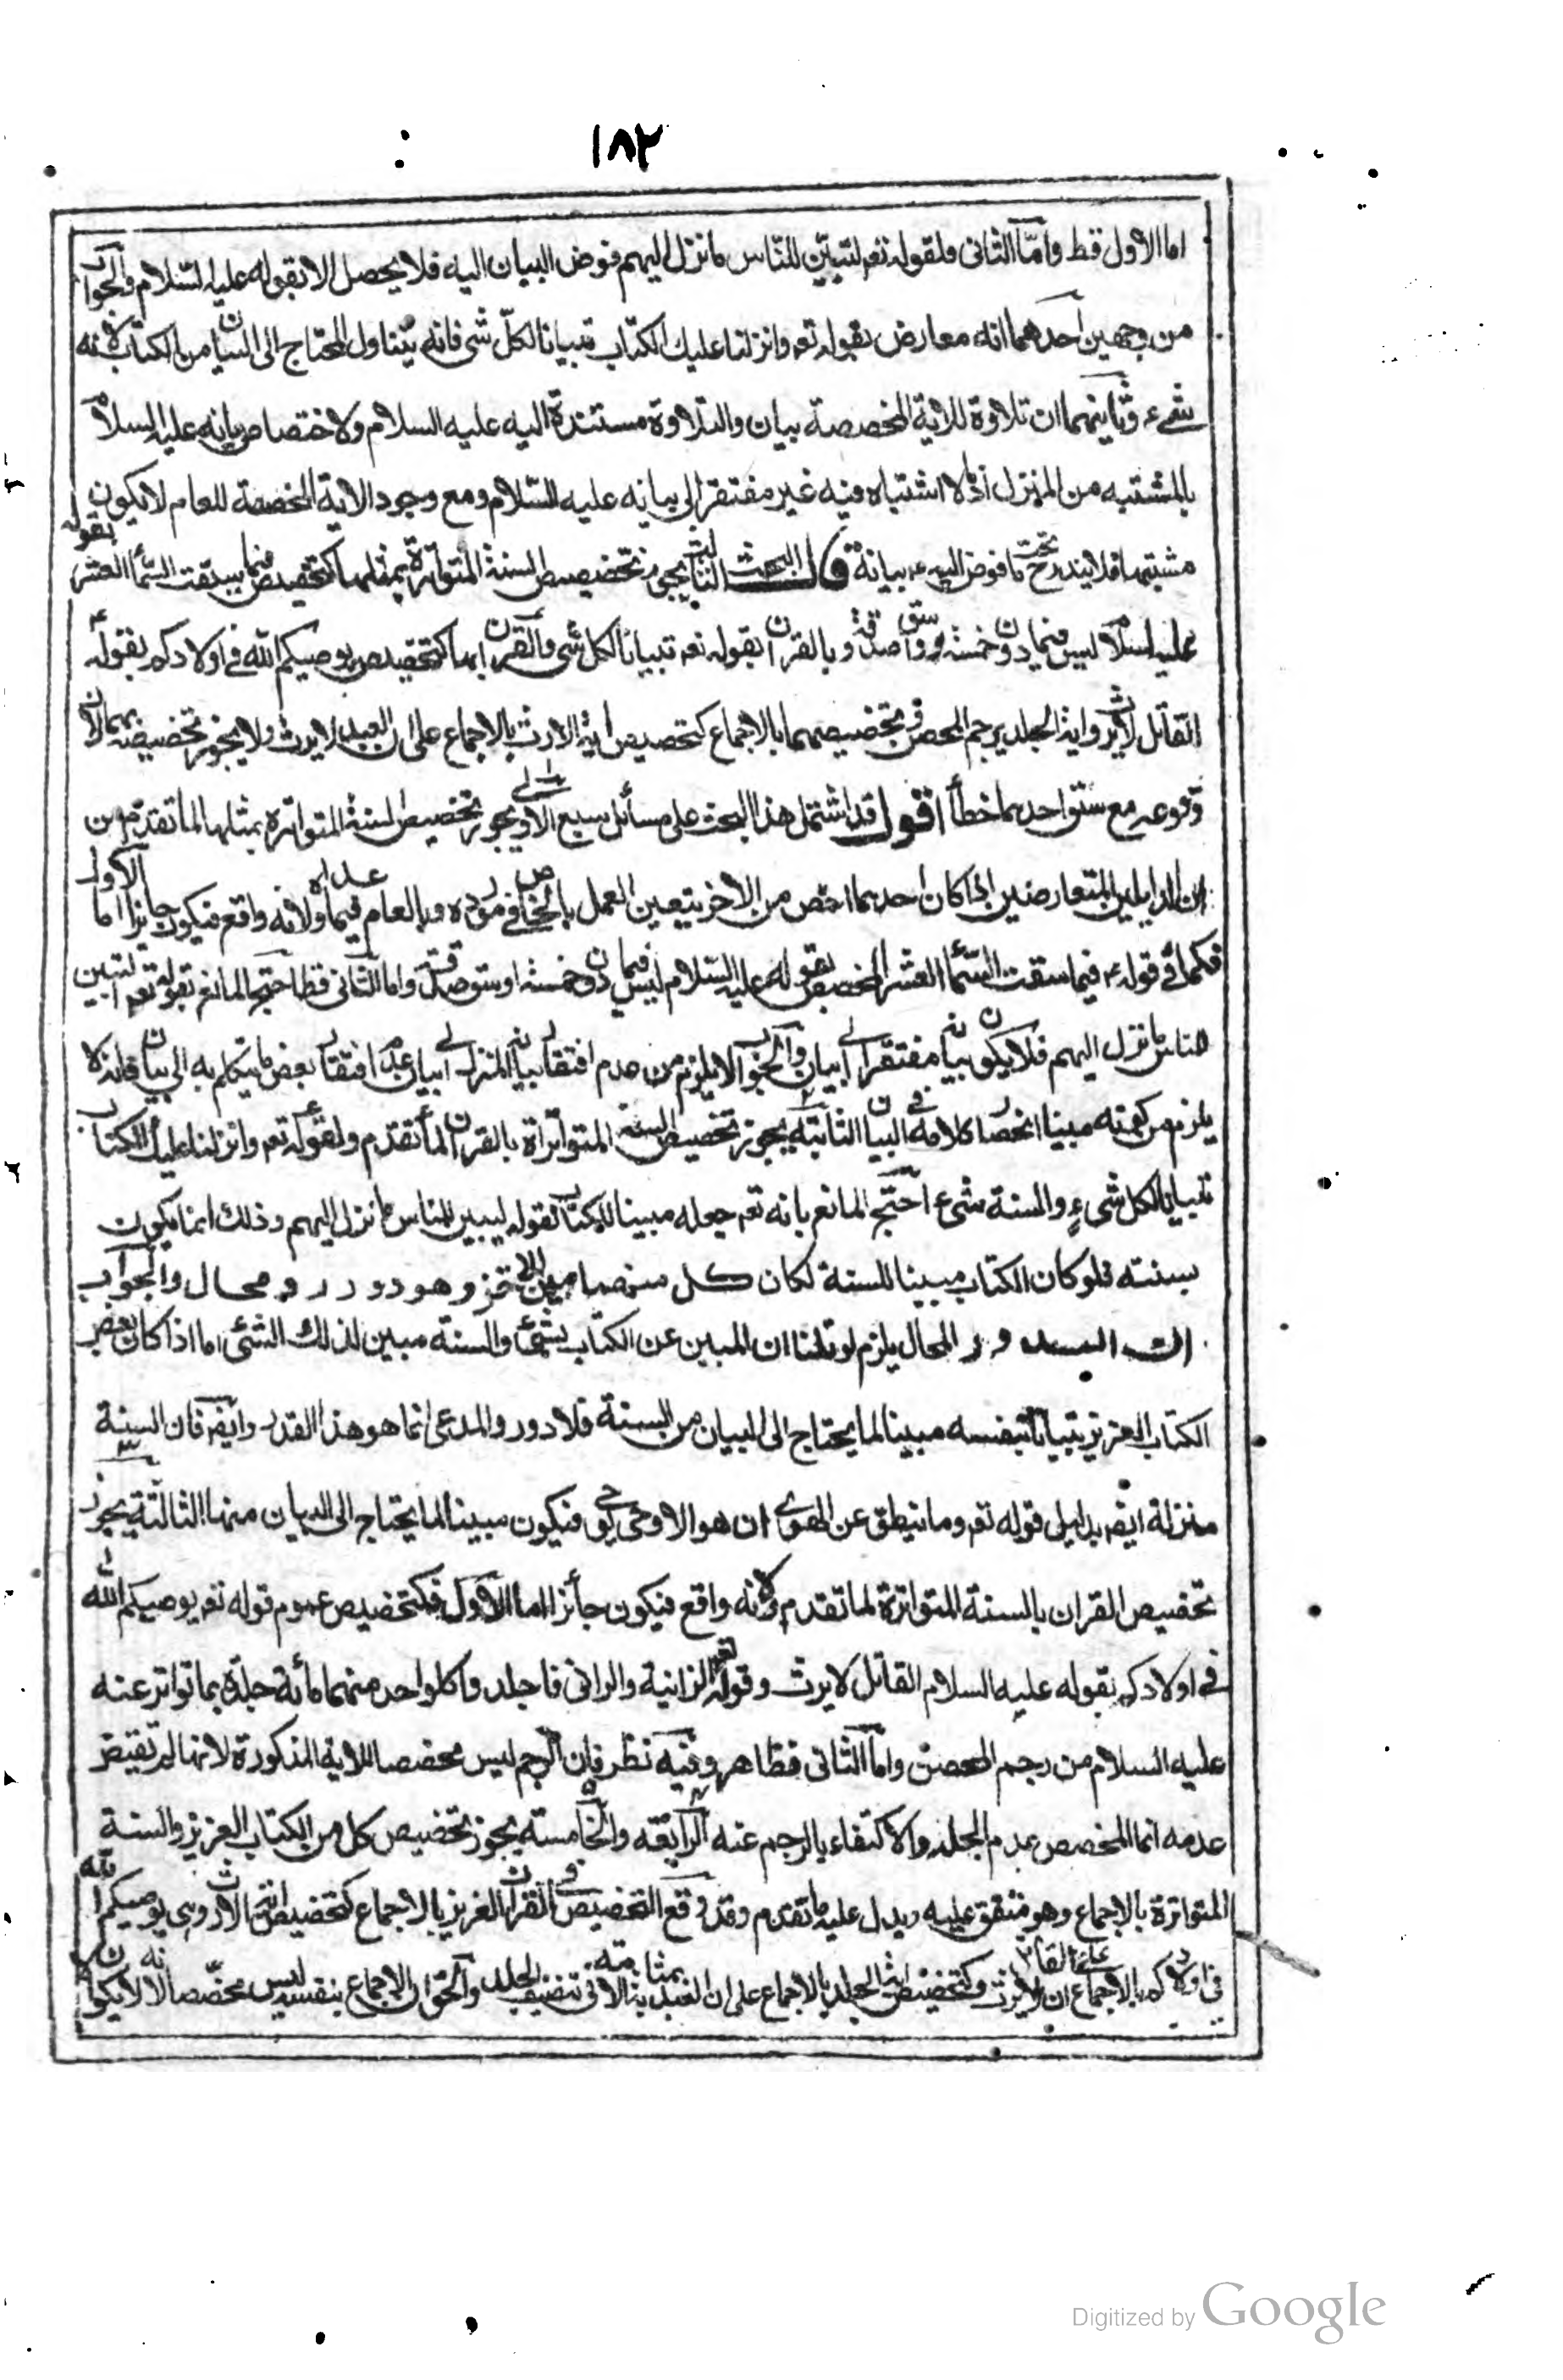 ١٨٢
اما الاول قط واما الثانى فلقوله تعم لتبين للناس ما نزل اليهم فوض البيان اليه فلا يحصل الا بقوله عليه السلام والجواب
من وجهين احدهما انه معارض بقوله تعم وانزلنا عليك الكتاب تبيانا لكل شى فانه يتناول المحتاج الى البيان من الكتاب لانه
شىء وثانيهما ان تلاوة للاية المخصصة بيان والتلاوة مستندة اليه عليه السلام ولاختصاص بيانه عليه السلام
بالمشتبه من المنزل اذ لا اشتباه فيه غير مفتقر الى بيانه عليه السلام ومع وجود الاية المخصصة للعام لا يكون
مشتبها فلا يندرج تحت ما فوض اليه بيانة قال البحث الثالث يجوز تخصيص السنة المتواترة بمثلها كتخصيص فيما سقت السماء العشر بقوله
عليه السلام ليس فيما دون خمسة اوسق صدقة وبالقران بقوله تعم تبيانا لكل شى والقران بها كتخصيص يوصيكم الله فى اولادكم بقوله
القاتل لا يرث واية الجلد برجم المحصن وتخصيصهما بالاجماع كتخصيص اية الارث بالاجماع على ان العبد لا يرث ولا يجوز تخصيصه بهما لان
وقوعه مع سبق احدهما خطأ اقول قد اشتمل هذا البحث على مسائل سبع الاولى يجوز تخصيص السنة المتواترة بمثلها لما تقدم من
ان الدليلين المتعارضين اذا كان احدهما اخص من الاخر يتعين العمل بالخاص فى مورده وبالعام فيما عداه ولانه واقع فيكون جايزا اما الاول
فكما فى قوله فيما سقت السماء العشر المخصص بقوله عليه السلام ليس فيما دون خمسة اوسق صدقة واما الثانى فظ احتج المانع بقوله تعم لتبين
للناس ما نزل اليهم فلا يكون بيانه مفتقرا الى بيان والجواب لا يلزم من عدم افتقار بيانه المنزل الى بيان عدم افتقار بعض ما يتكلم به الى بيان فانه لا
يلزم من كونه مبينا انحصار كلامه فى البيان الثانية يجوز تخصيص السنة المتواترة بالقران لما تقدم ولقوله تعم وانزلنا عليك الكتاب
تبيانا لكل شىء والسنة شىء احتج المانع بانه تعم جعله مبينا للكتاب لقوله ليبين للناس ما نزل اليهم وذلك انما يكون
بسنته فلو كان الكتاب مبينا للسنة لكان كل منهما مبين للاخر وهو دور ومحال والجواب
ان الدور المحال يلزم لو قلنا ان المبين عن الكتاب بشىء والسنة مبين لذلك الشى اما اذا كان بعض
الكتاب العزيز تبيانا بنفسه مبينا لما يحتاج الى البيان من السنة فلا دور والمدعى انما هو هذا القدر وايضا فان السنة
منزلة ايضا بدليل قوله تعم وما ينطق عن الهوى ان هو الا وحى يوحى فيكون مبينا لما يحتاج الى البيان منها الثالثة يجوز
تخصيص القران بالسنة المتواترة لما تقدم ولانه واقع فيكون جائزا اما الاول فكتخصيص عموم قوله تعم يوصيكم الله
فى اولادكم بقوله عليه السلام القاتل لا يرث وقوله تعم الزانية والزانى فاجلدوا كل واحد منهما مائة جلدة بما تواتر عنه
عليه السلام من رجم المحصن واما الثانى فظاهر وفيه نظر فان الرجم ليس مخصصا للاية المذكورة لانها لم تقتض
عدمه انما المخصص عدم الجلد والاكتفاء بالرجم عنه الرابعة والخامسة يجوز تخصيص كل من الكتاب العزيز والسنة
المتواترة بالاجماع وهو متفق عليه ويدل عليه ما تقدم وقد وقع التخصيص فى القران العزيز بالاجماع كتخصيص اية الارث وهى يوصيكم الله
فى اولادكم بالاجماع على ان القاتل لا يرث وكتخصيص اية الجلد بالاجماع على ان العبد بمثابته فى تنصيف الجلد والحق ان الاجماع بنفسه ليس مخصصا لانه لا يكون
Digitized by Google